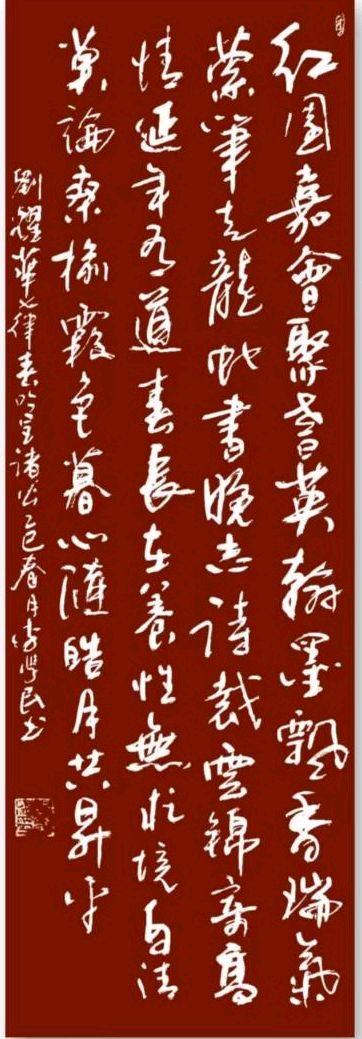 红園嘉會聚耆英翰墨飄香瑞氣
縈筆走龍蛇書晚志詩裁雲錦寄高
情延年有道春長在養性無忧境自清
莫論桑榆霞色暮心隨皓月共昇平
劉耀華七律春吟呈諸公乙巳春月李學民书